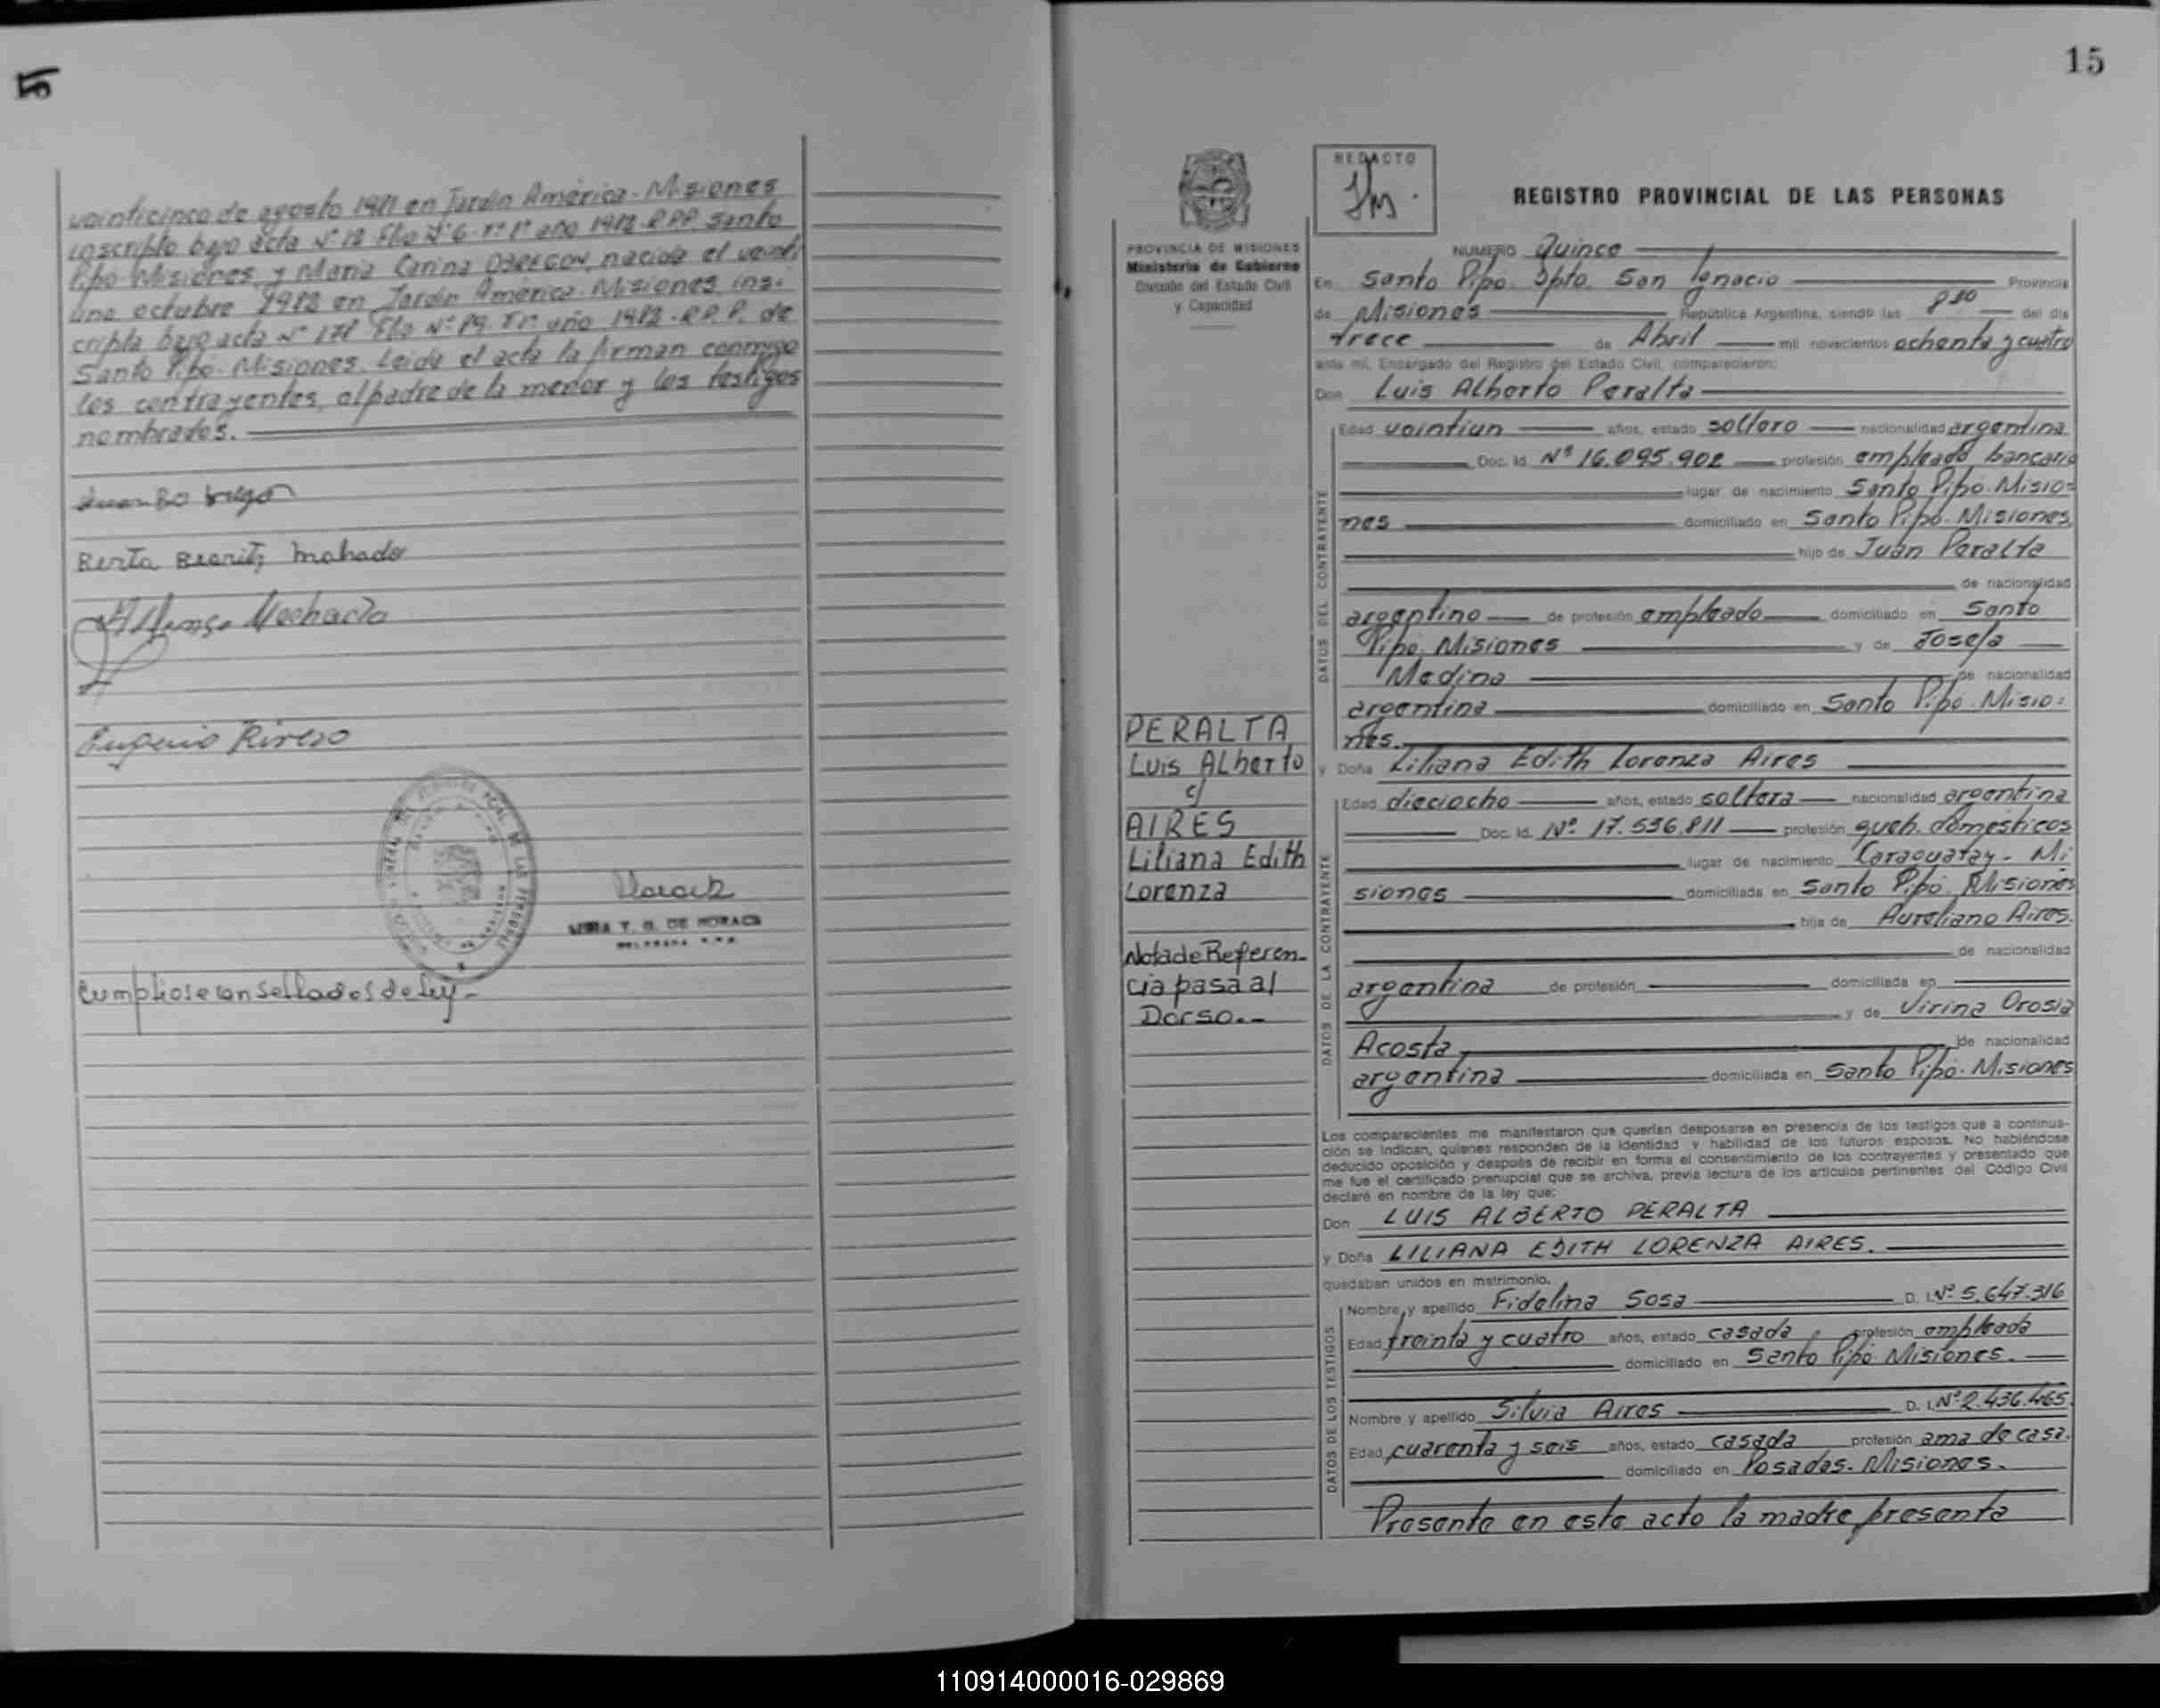 15
veinticinco de agosto 1981 en Jardín América - Misiones
inscripto bajo acta Nº 12 Flo Nº 6 Tº 1º año 1982 R.P.P. Santo
Pipo Misiones y Maria Carina OBREGON, nacida el veinti
uno octubre 1982 en Jardín América - Misiones, ins-
cripta bajo acta Nº 178 Flo Nº 89 Tº año 1982 - R.P.P. de
Santo Pipó - Misiones. Leida el acta la firman conmigo
los contrayentes, el padre de la menor y los testigos
nombrados.
Juan Obregon
Berta Beariz Mahado
Machado
Eugenio Rivero
DE MORACZ
Cumpliose con Sellados de Ley -
15
PROVINCIA DE MISIONES
Ministerio de Gobierno
División del Estado Civil
y Capacidad
REDACTO
REGISTRO PROVINCIAL DE LAS PERSONAS
NUMERO Quince
En Santo Pipo. Dpto. San Ignacio Provincia
de Misiones República Argentina, siendo las 8 30 del día
trece de Abril mil novecientos ochenta y cuatro
ante mí, Encargado del Registro del Estado Civil, comparecieron:
Don Luis Alberto Peralta
Edad veintiun años, estado soltero nacionalidad argentina
Doc. Id. Nº 16.095.902 profesión empleado bancario
lugar de nacimiento Santo Pipó. Misio=
nes domiciliado en Santo Pipó. Misiones
hijo de Juan Peralta
de nacionalidad
argentino de profesión empleado domiciliado en Santo
Pipo. Misiones y de Josefa
Medina de nacionalidad
argentina domiciliado en Santo Pipo. Misio=
nes.
y Doña Liliana Edith Lorenza Aires
Edad dieciocho años, estado soltera nacionalidad argentina
Doc. Id. Nº 17.536.811 profesión queh. domesticos
lugar de nacimiento Caraguatay - Mi
siones domiciliada en Santo Pipó. Misiones
hija de Aureliano Aires.
de nacionalidad
argentina de profesión domiciliada en
y de Virina Orosia
Acosta de nacionalidad
argentina domiciliada en Santo Pipó. Misiones
DATOS DEL CONTRAYENTE
DATOS DE LA CONTRAYENTE
PERALTA
Luis Alberto
c/
AIRES
Liliana Edith
Lorenza
Nota de Referen-
cia pasa al
Dorso.-
Los comparecientes me manifestaron que querían desposarse en presencia de los testigos que a continua-
ción se indican, quienes responden de la identidad y habilidad de los futuros esposos. No habiéndose
deducido oposición y después de recibir en forma el consentimiento de los contrayentes y presentado que
me fue el certificado prenupcial que se archiva, previa lectura de los artículos pertinentes del Código Civil
declaré en nombre de la ley que:
Don LUIS ALBERTO PERALTA
y Doña LILIANA EDITH LORENZA AIRES.
quedaban unidos en matrimonio.
Nombre y apellido Fidelina Sosa D. I. Nº 5.647.316
Edad treinta y cuatro años, estado casada, profesión empleada
domiciliado en Santo Pipó Misiones.
Nombre y apellido Silvia Aires D. I. Nº 2.436.465
Edad cuarenta y seis años, estado casada profesión ama de casa.
domiciliado en Posadas. Misiones.
DATOS DE LOS TESTIGOS
Presente en este acto la madre presenta
110914000016-029869